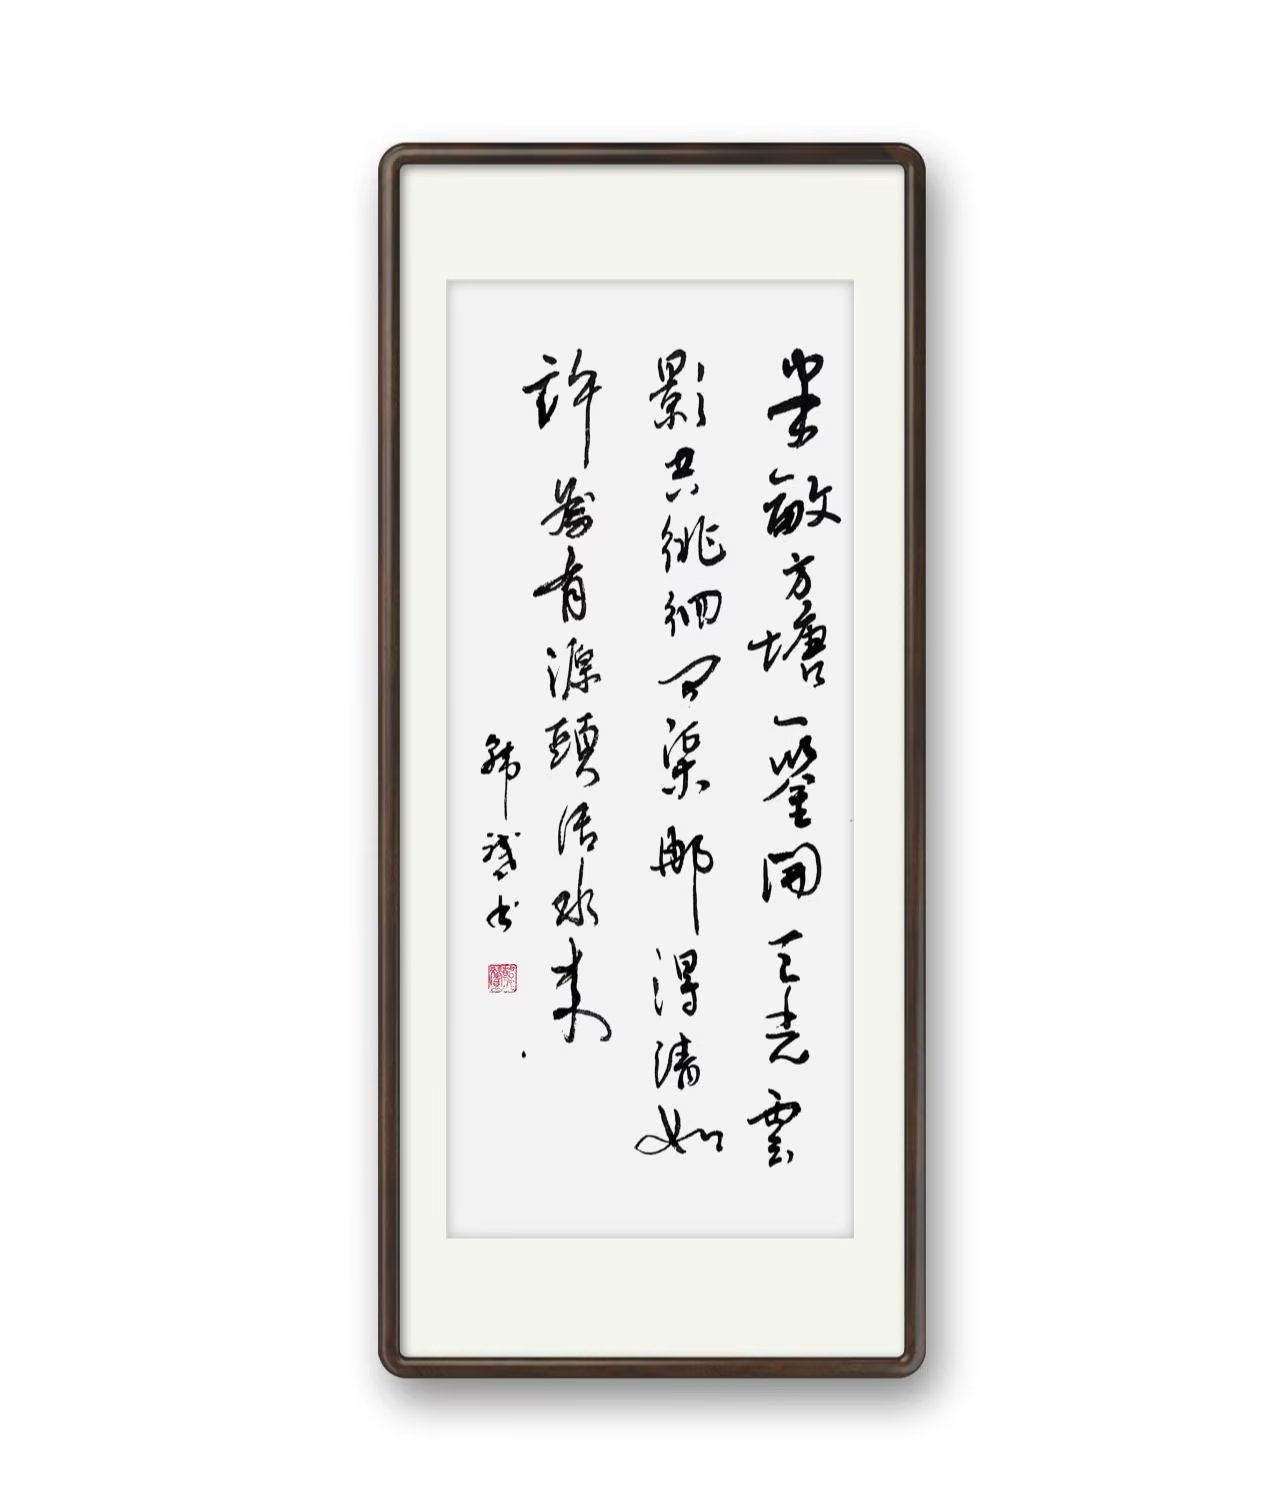 半畝方塘一鑒開天光雲
影共徘徊問渠那得清如
許為有源頭活水來
書